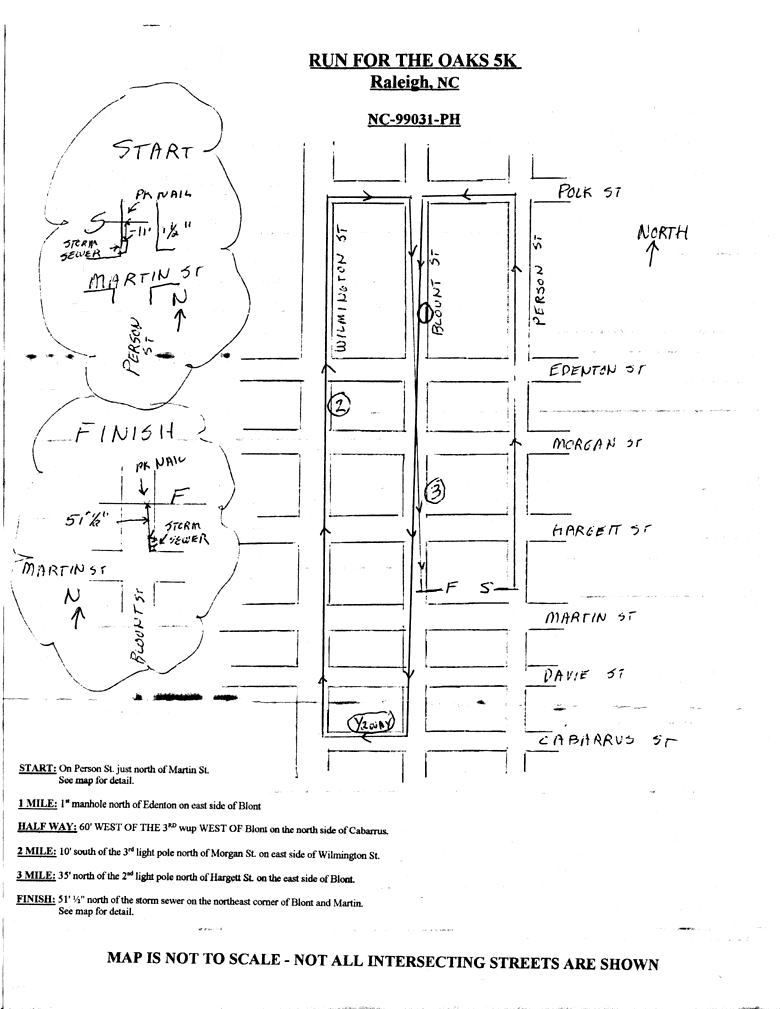 RUN FOR THE OAKS 5K
Raleigh, NC
NC-99031-PH
START
PK NAIL
S
11' 1½"
STORM
SEWER
MARTIN ST
N
PERSON
ST
FINISH
PK NAIL
F
51' ½"
STORM
SEWER
MARTIN ST
N
BLOUNT ST
POLK ST
NORTH
WILMINGTON ST
BLOUNT ST
PERSON ST
EDENTON ST
2
MORGAN ST
3
HARGETT ST
F S
MARTIN ST
DAVIE ST
½ WAY
CABARRUS ST
START: On Person St. just north of Martin St.
See map for detail.
1 MILE: 1st manhole north of Edenton on east side of Blont
HALF WAY: 60' WEST OF THE 3RD wup WEST OF Blont on the north side of Cabarrus.
2 MILE: 10' south of the 3rd light pole north of Morgan St. on east side of Wilmington St.
3 MILE: 35' north of the 2nd light pole north of Hargett St. on the east side of Blont.
FINISH: 51' ½" north of the storm sewer on the northeast corner of Blont and Martin.
See map for detail.
MAP IS NOT TO SCALE - NOT ALL INTERSECTING STREETS ARE SHOWN